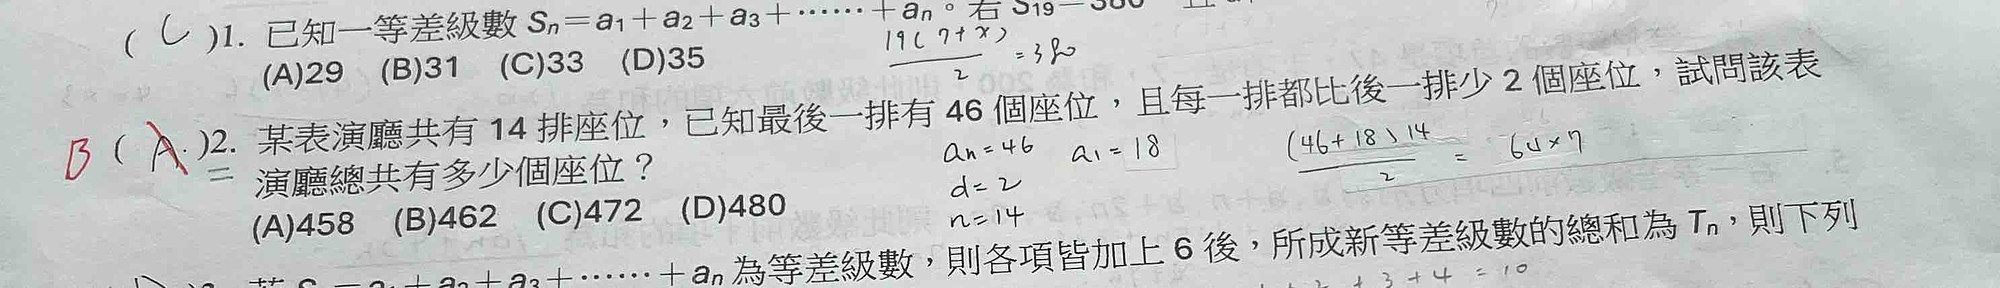 ( C )1. 已知一等差級數 Sn=a1+a2+a3+⋯⋯+an。若 S19=380
19(7+x)/2 =380
(A)29 (B)31 (C)33 (D)35
B ( A )2. 某表演廳共有 14 排座位，已知最後一排有 46 個座位，且每一排都比後一排少 2 個座位，試問該表
演廳總共有多少個座位？
an=46 a1=18
(46+18)14/2 = 64×7
d=2
n=14
(A)458 (B)462 (C)472 (D)480
a1+a2+a3+⋯⋯+an 為等差級數，則各項皆加上 6 後，所成新等差級數的總和為 Tn，則下列
+3+4=10